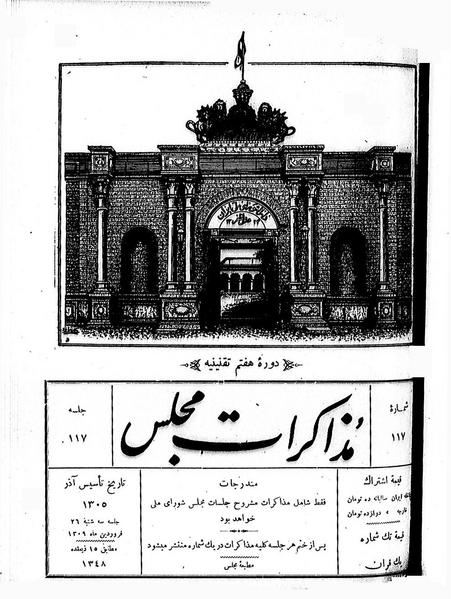 دورهٔ هفتم تقنینیه
شمارهٔ
۱۱۷
مذاکرات مجلس
جلسه
۱۱۷
قیمة اشتراك
ایران سالیانه ده تومان
دوازده تومان
قیمة تك شماره
یك قران
مندرجات
فقط شامل مذاکرات مشروح جلسات مجلس شورای ملی
خواهد بود
پس از ختم هر جلسه کلیه مذاکرات در یك شماره منتشر میشود
مطبعهٔ مجلس
تاریخ تأسیس آذر
۱۳۰۵
جلسه سه شنبهٔ ۲۶
فروردین ماه ۱۳۰۹
مطابق ۱۵ ذیقعده
۱۳۴۸